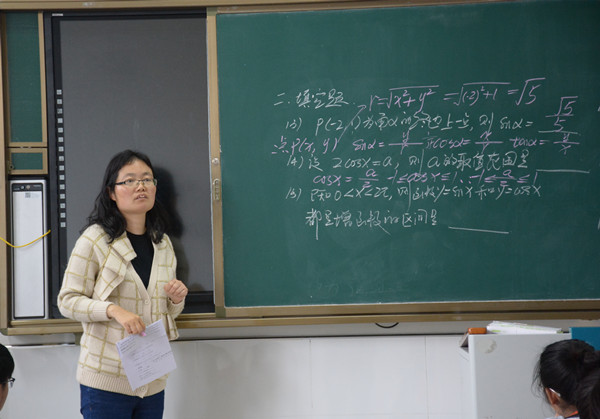 二.填空题. r=√x²+y² =√(-2)²+1 =√5
13) P(-2,1)为角α的终边上一点,则sinα= √5/5
点P(x,y) sinα= y/r cosα= x/r tanα= y/x
14) 设2cosx=a,则a的取值范围是
cosx= a/2 -1≤cosx≤1 -1≤ a/2 ≤1
15) 已知0<x<2π,则函数y=sinx和y=cosx
都是增函数的区间是